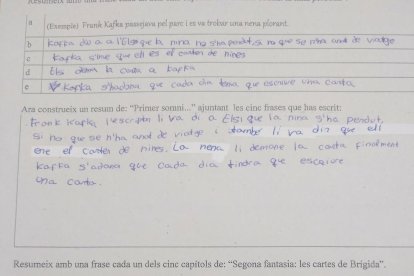 a (Exemple) Frank Kafka passejava pel parc i es va trobar una nena plorant.
b Kafka diu a a l'Elsi que la nina no s'ha perdut, si no que se n'ha anat de viatge
c Kafka s'ine que ell és el carter de nines
d Elsi la carta a Kafka
e Kafka s'hadona que cada dia tena que escriure una carta
Ara construeix un resum de: "Primer somni..." ajuntant les cinc frases que has escrit:
Frank Kafka l'escriptor li va di a Elsi que la nina s'ha perdut,
si no que se n'ha anat de viatge i també li va din que ell
ere el carter de nines. La nena li demane la carta finalment
Kaffa s'adona que cada dia tindra que escriure
una carta.
Resumeix amb una frase cada un dels cinc capítols de: "Segona fantasia: les cartes de Brígida".